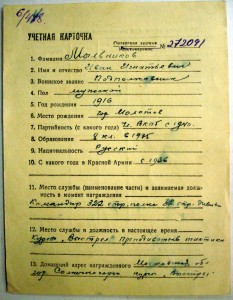 УЧЕТНАЯ КАРТОЧКА
№ 272091
1. Фамилия Мальников
2. Имя и отчество Иван Игнатьевич
3. Воинское звание Подполковник
4. Пол мужской
5. Год рождения 1916
6. Место рождения гор. Молотов
7. Партийность (с какого года) Чл. ВКПб с 1940.
8. Образование 8 кл. с 1935
9. Национальность Русский
10. С какого года в Красной Армии с 1936
11. Место службы (наименование части) и занимаемая должность в момент награждения
Командир 322 стр. полка
12. Место службы и должность в настоящее время
Курсы "Выстрел" Преподаватель тактики
13. Домашний адрес награжденного Московская
гор. Солнечногорск курсы "Выстрел"